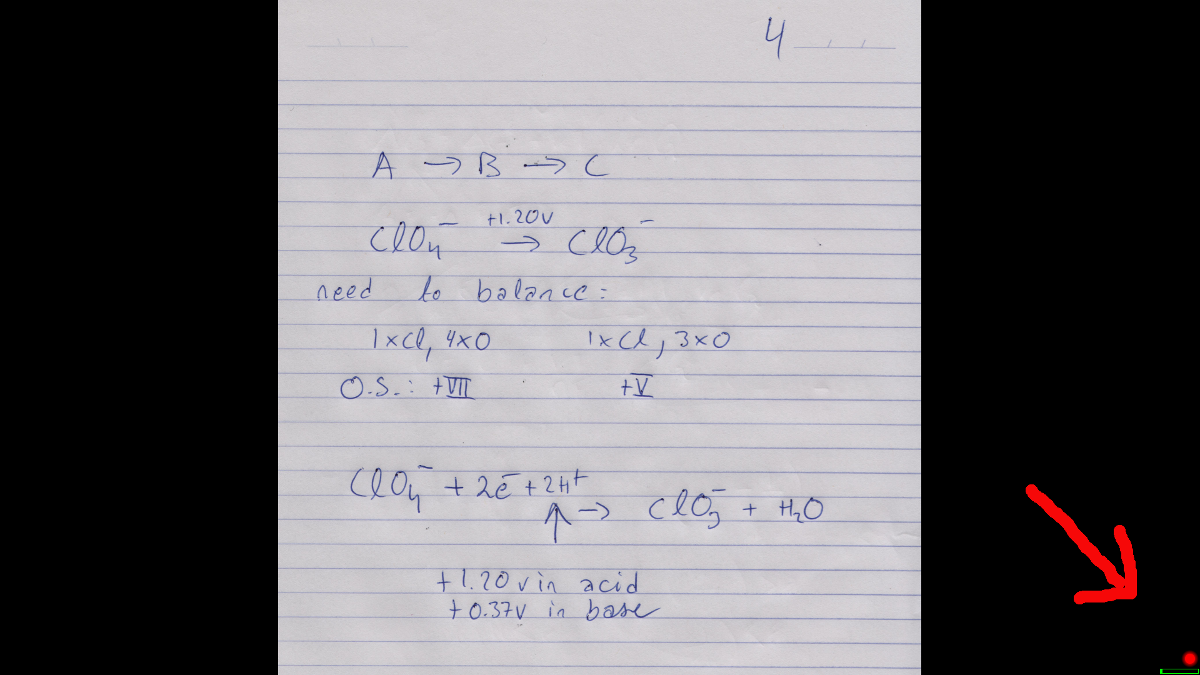 4
A → B → C
ClO₄⁻ +1.20v → ClO₃⁻
need to balance:
1×Cl, 4×O 1×Cl, 3×O
O.S.: +VII +V
ClO₄⁻ + 2e⁻ + 2H⁺ → ClO₃⁻ + H₂O
↑
+1.20 v in acid
+0.37v in base